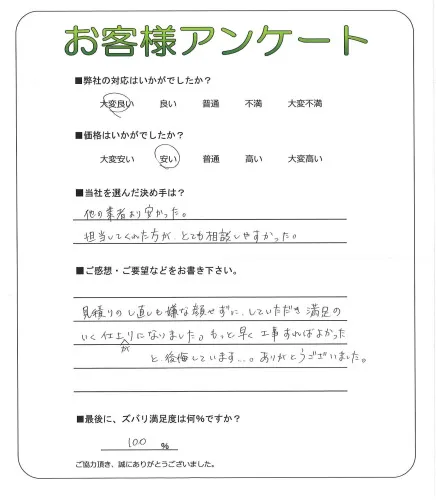 お客様アンケート
■弊社の対応はいかがでしたか？
大変良い　良い　普通　不満　大変不満
■価格はいかがでしたか？
大変安い　安い　普通　高い　大変高い
■当社を選んだ決め手は？
他の業者より安かった。
担当してくれた方が、とても相談しやすかった。
■ご感想・ご要望などをお書き下さい。
見積りのし直しも嫌な顔せずに、していただき満足の
いく仕上がりになりました。もっと早く工事すればよかった
と、後悔しています…。ありがとうございました。
■最後に、ズバリ満足度は何％ですか？
100 ％
ご協力頂き、誠にありがとうございました。